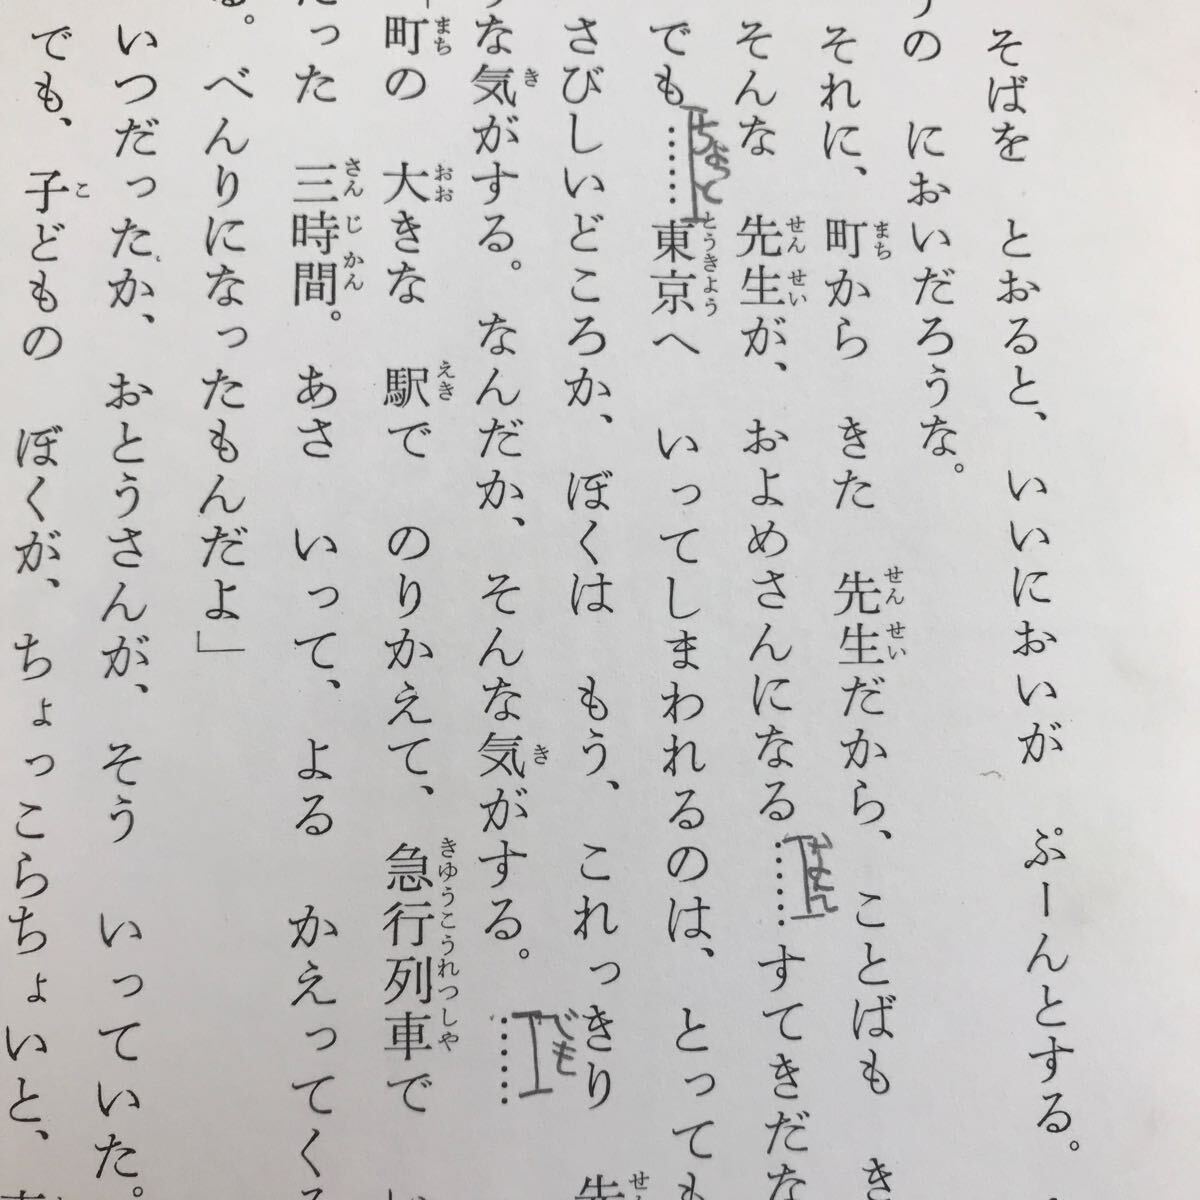 そばを とおると、いいにおいが ぷーんとする。
うの においだろうな。
それに、町から きた 先生だから、ことばも き
そんな 先生が、およめさんになる……すてきだな
なん
でも……東京へ いってしまわれるのは、とっても
ちょっと
さびしいどころか、ぼくは もう、これっきり 先
な気がする。なんだか、そんな気がする。……
でも
「町の 大きな 駅で のりかえて、急行列車で
たった 三時間。あさ いって、よる かえってくる
る。べんりになったもんだよ」
いつだったか、おとうさんが、そう いっていた。
でも、子どもの ぼくが、ちょっこらちょいと、